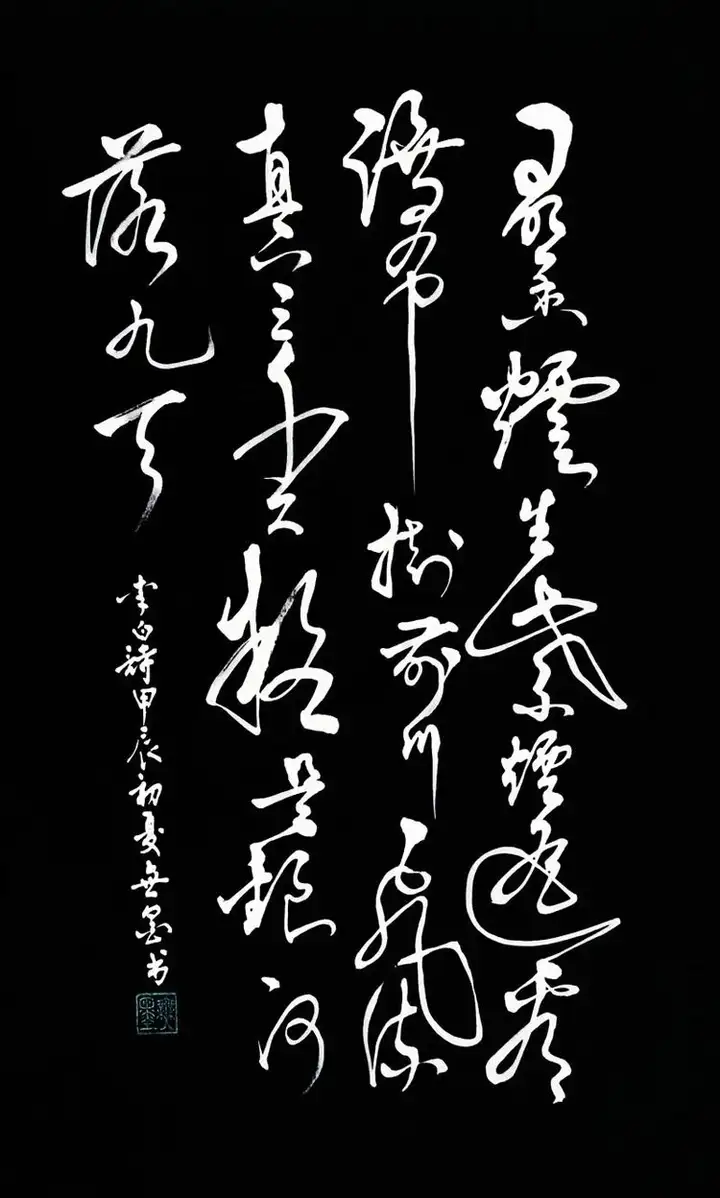 日照香爐生紫煙遥看
瀑布掛前川飛流
直下三千尺疑是銀河
落九天
李白詩甲辰初夏無墨书